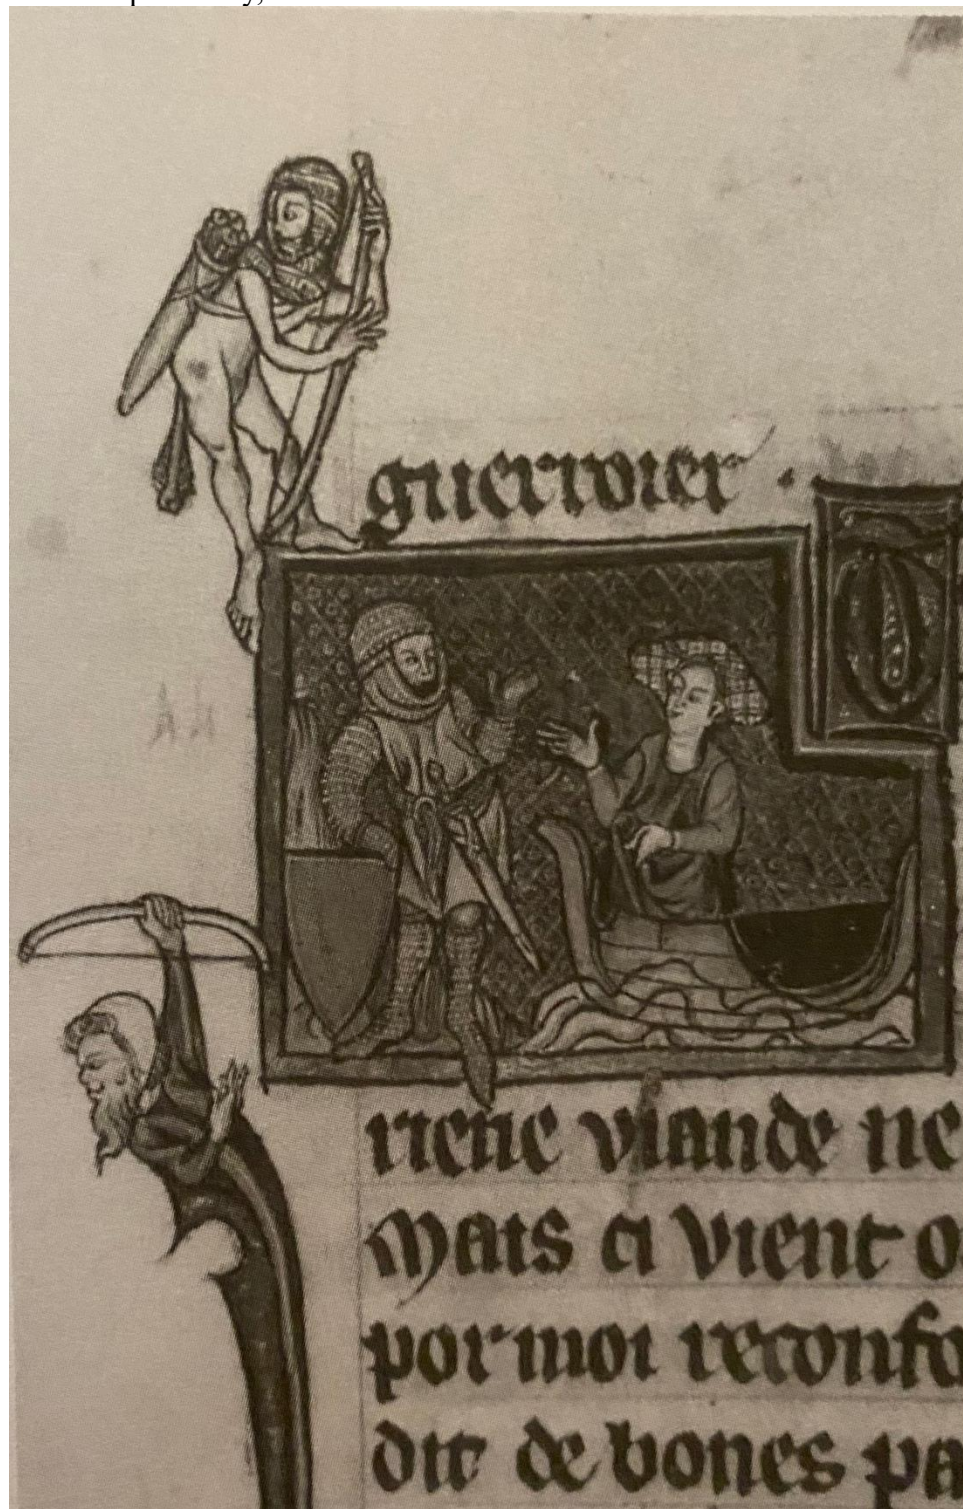 guerroier ·
riene viande ne
Mais ci vient
por moi reconfo
dit de bones pa